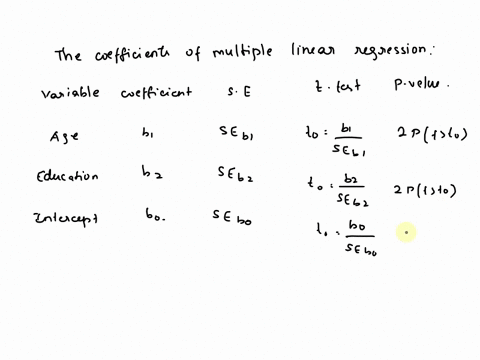 The coefficients of multiple linear regression:
Variable coefficient S.E t.test P.value.
Age b1 SEb1 t0 = b1/SEb1 2P(t>t0)
Education b2 SEb2 t0 = b2/SEb2 2P(t>t0)
Intercept b0. SEb0 t0 = b0/SEb0